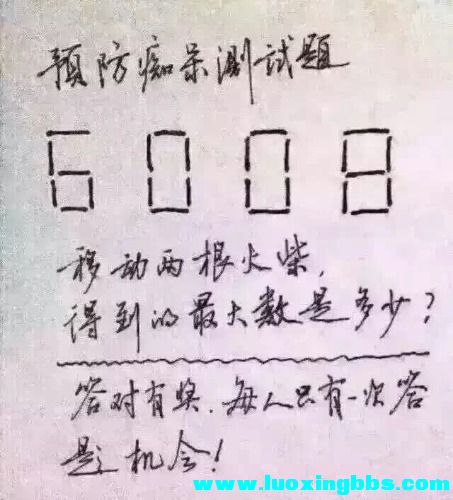 预防痴呆测试题
6008
移动两根火柴,
得到的最大数是多少?
答对有奖.每人只有一次答
题机会!
www.luoxingbbs.com